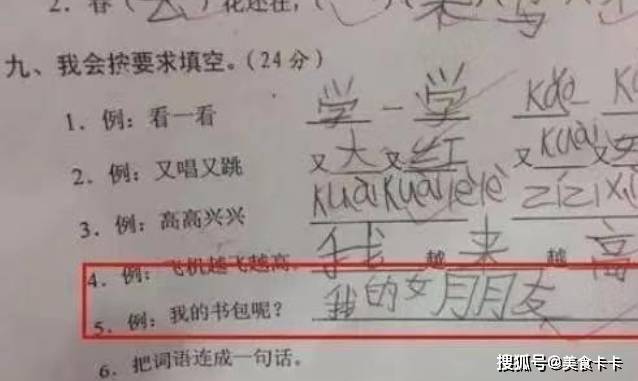 2. 春（去）花还在，
九、我会按要求填空。（24分）
1. 例：看一看 学一学 Kǎo
2. 例：又唱又跳 又大又红 又Kuài又
3. 例：高高兴兴 KuàiKuàilèlè zízìxǐ
4. 例：飞机越飞越高。 我越来越高
5. 例：我的书包呢？ 我的女朋友
6. 把词语连成一句话。
搜狐号@美食卡卡